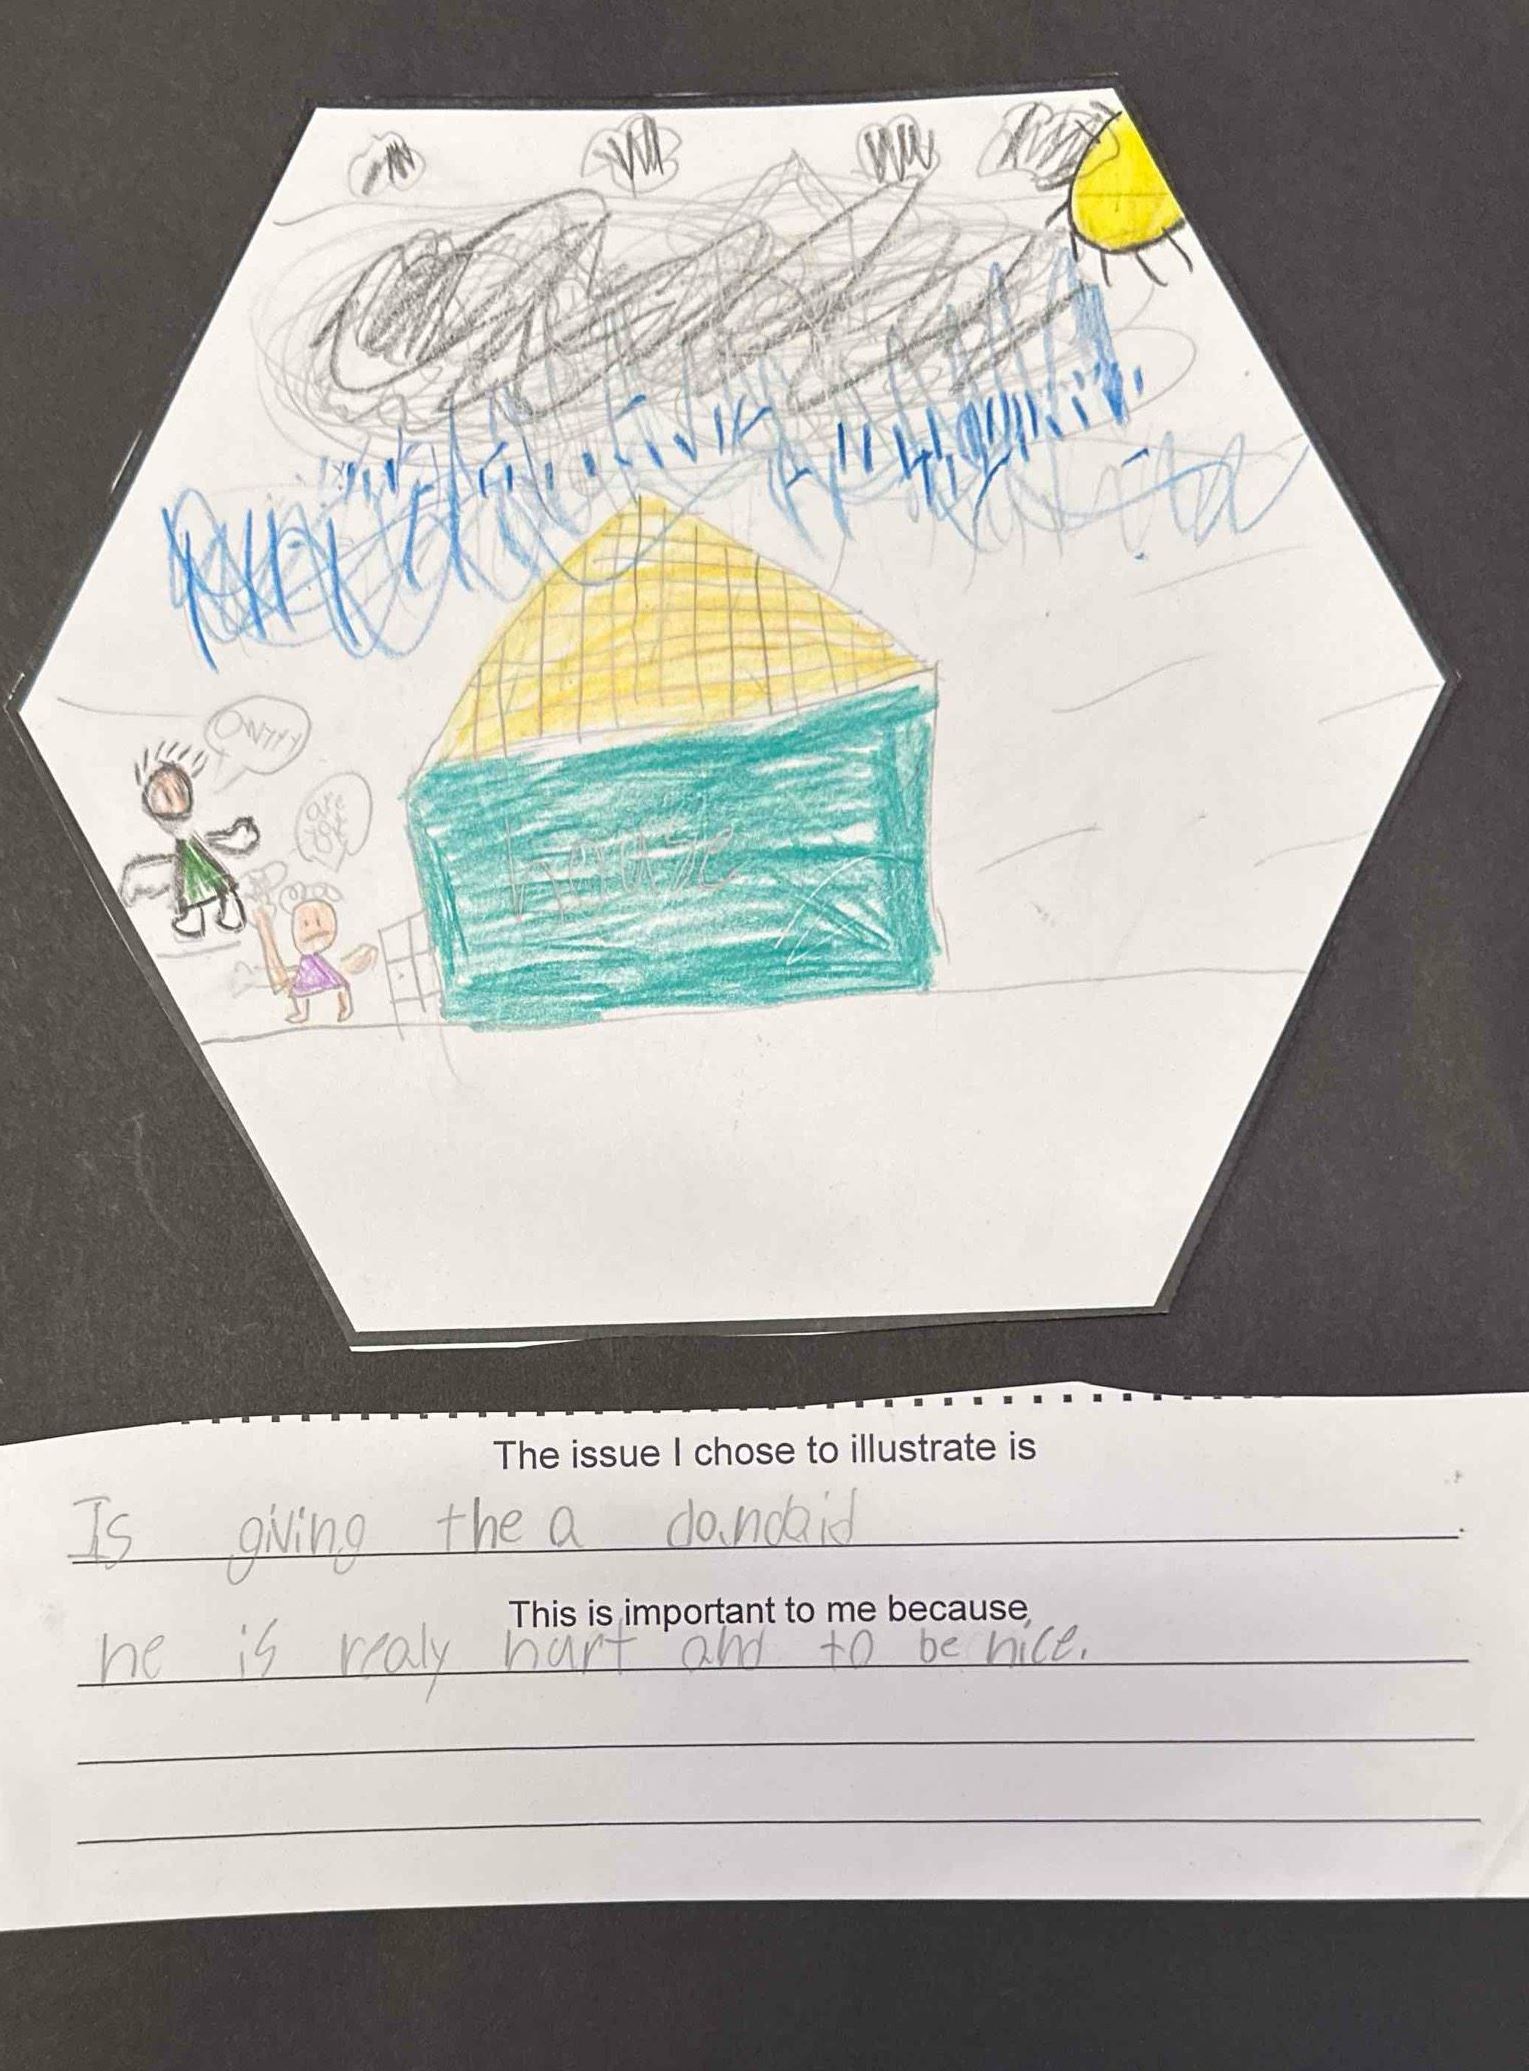 OWYYY
are
you
oke
house
The issue I chose to illustrate is
Is giving the a dandaid
This is important to me because
he is realy hurt and to be nice.